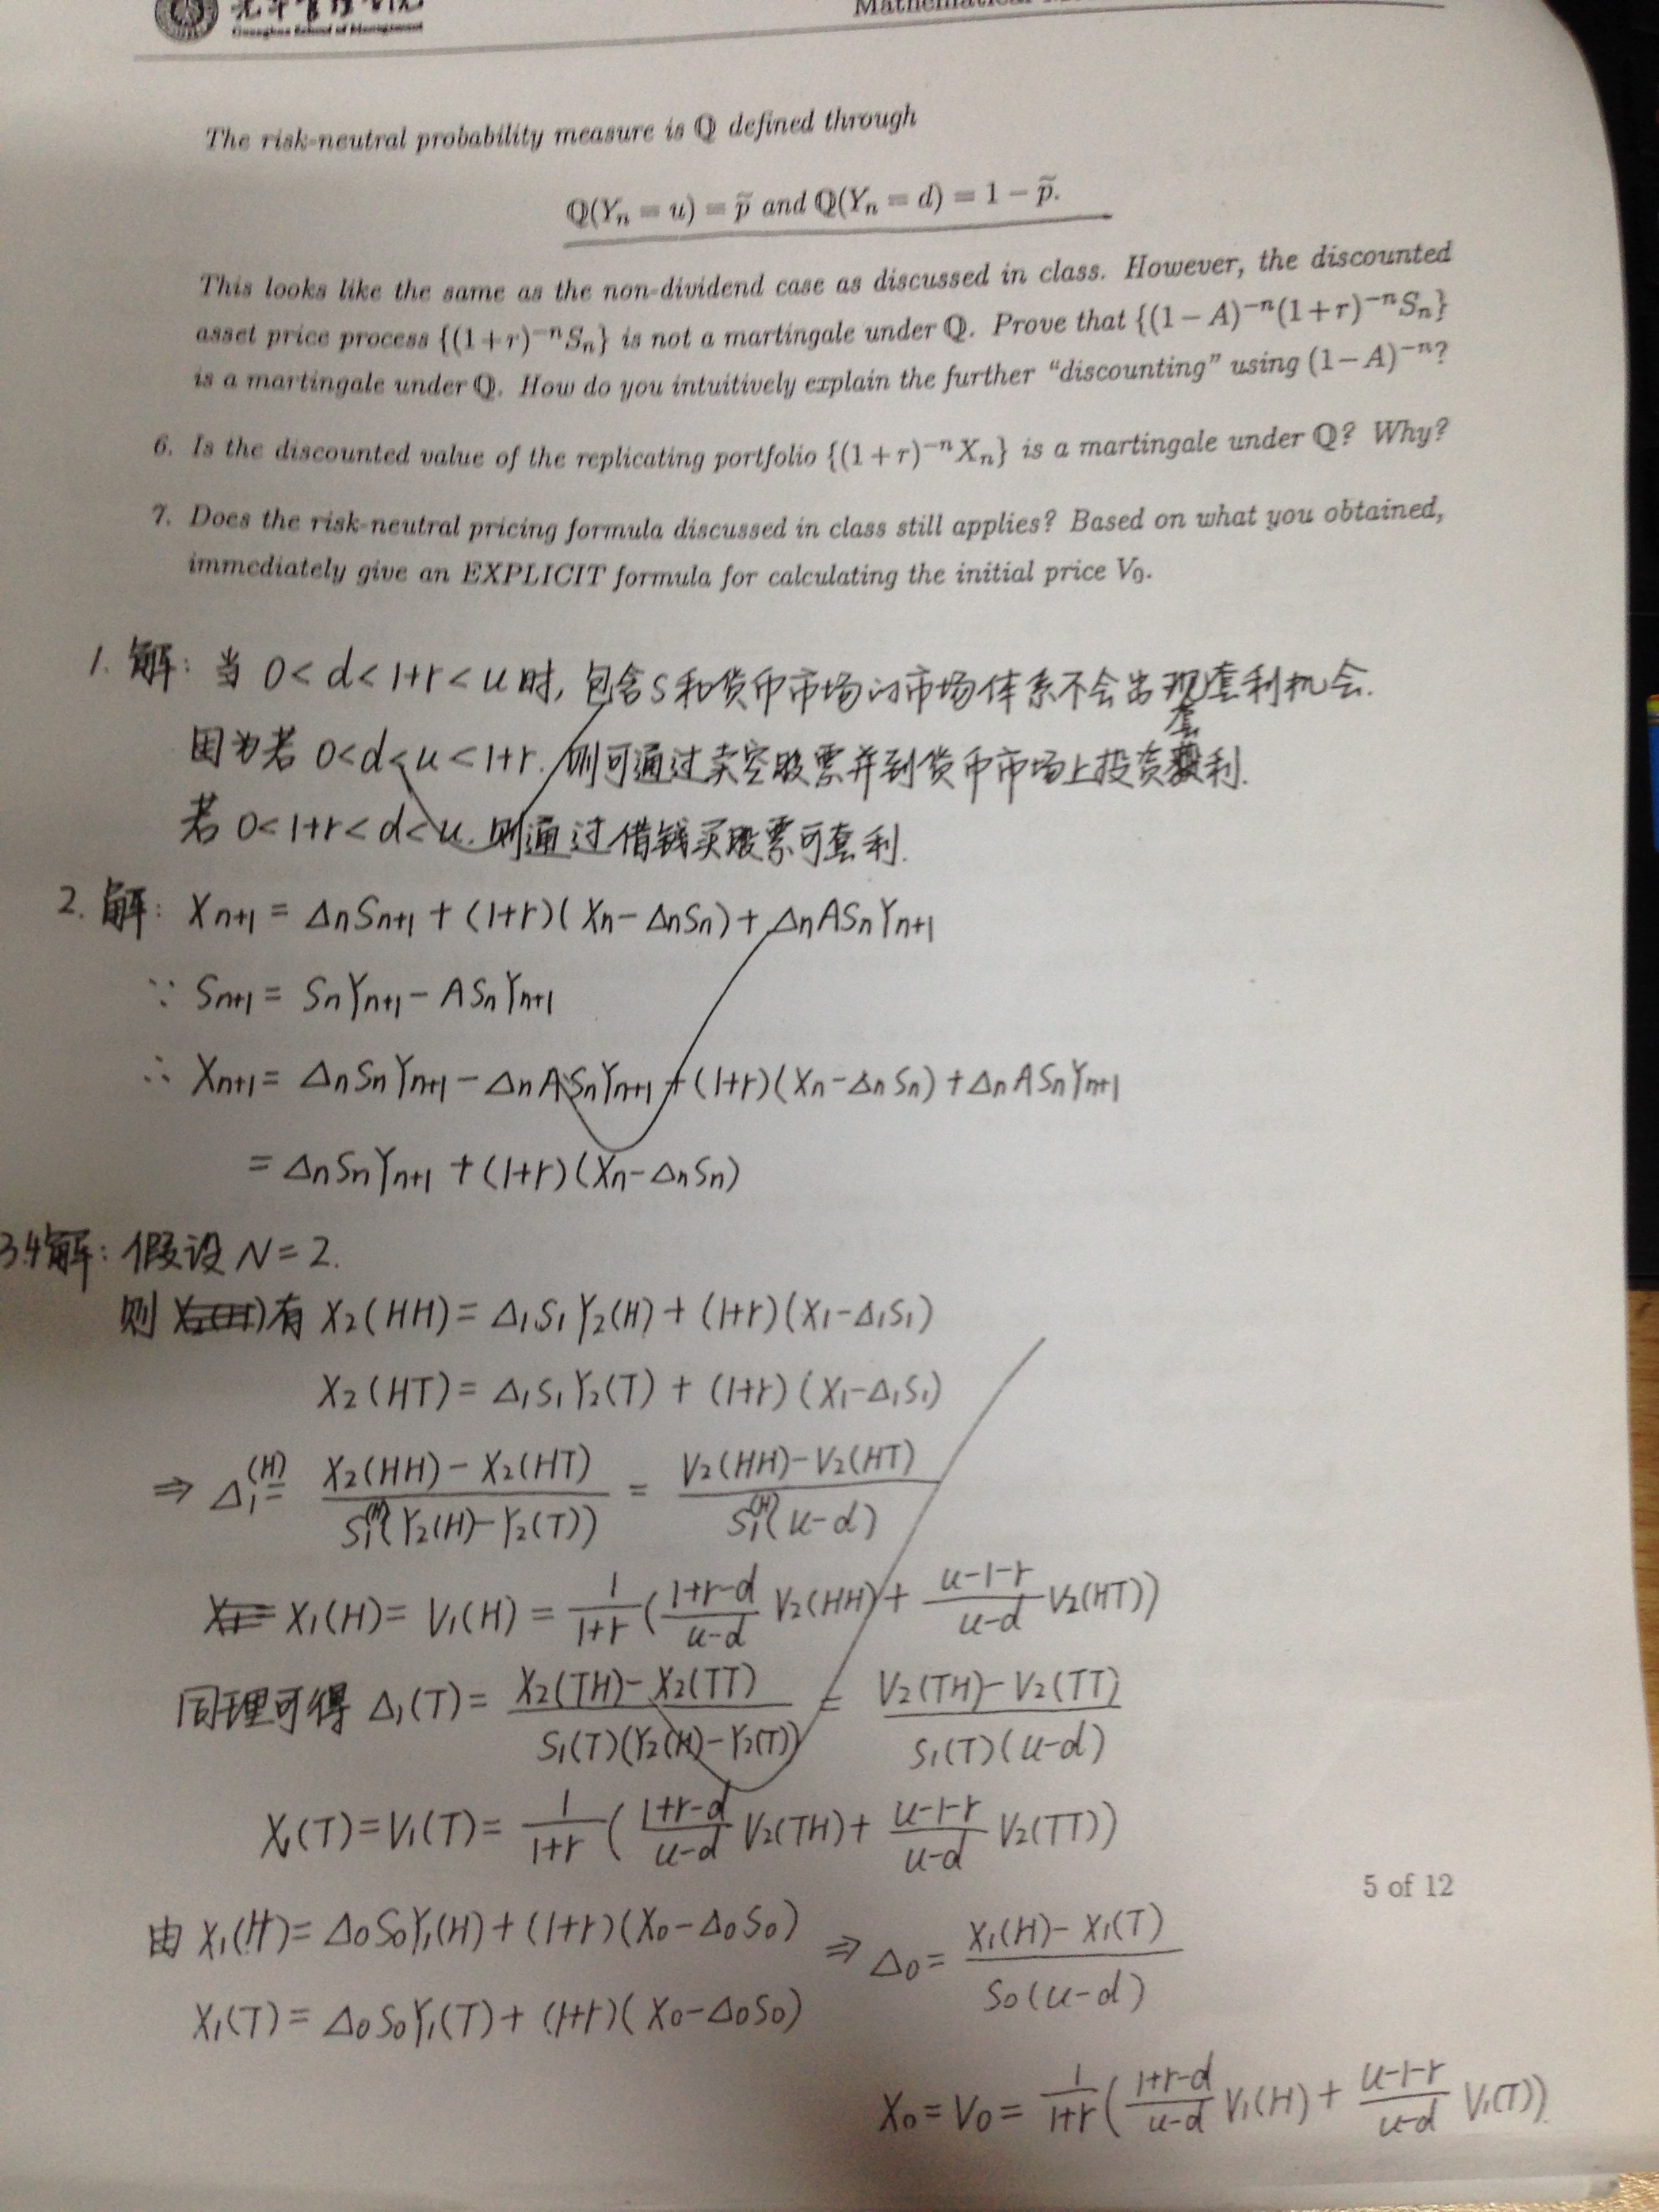 Guanghua School of Management
The risk-neutral probability measure is ℚ defined through
ℚ(Yₙ = u) = p̃ and ℚ(Yₙ = d) = 1 − p̃.
This looks like the same as the non-dividend case as discussed in class. However, the discounted
asset price process {(1+r)⁻ⁿSₙ} is not a martingale under ℚ. Prove that {(1 − A)⁻ⁿ(1+r)⁻ⁿSₙ}
is a martingale under ℚ. How do you intuitively explain the further “discounting” using (1−A)⁻ⁿ?
6. Is the discounted value of the replicating portfolio {(1+r)⁻ⁿXₙ} is a martingale under ℚ? Why?
7. Does the risk-neutral pricing formula discussed in class still applies? Based on what you obtained,
immediately give an EXPLICIT formula for calculating the initial price V₀.
1. 解: 当 0<d<1+r<u时, 包含S和货币市场的市场体系不会出现套利机会.
因为若 0<d<u<1+r. 则可通过卖空股票并到货币市场上投资套利.
若 0<1+r<d<u. 则通过借钱买股票可套利.
2. 解: Xn+1 = ΔnSn+1 + (1+r)(Xn−ΔnSn)+ ΔnASnYn+1
∵ Sn+1 = SnYn+1 − ASnYn+1
∴ Xn+1 = ΔnSnYn+1 − ΔnASnYn+1 + (1+r)(Xn−ΔnSn) + ΔnASnYn+1
= ΔnSnYn+1 + (1+r)(Xn−ΔnSn)
3.4解: 假设 N=2.
则 有 X₂(HH) = Δ₁S₁Y₂(H) + (1+r)(X₁−Δ₁S₁)
X₂(HT) = Δ₁S₁Y₂(T) + (1+r)(X₁−Δ₁S₁)
⇒ Δ₁(H) = (X₂(HH)−X₂(HT))/(S₁(H)(Y₂(H)−Y₂(T))) = (V₂(HH)−V₂(HT))/(S₁(H)(u−d))
X₁(H) = V₁(H) = 1/(1+r) ((1+r−d)/(u−d) V₂(HH) + (u−1−r)/(u−d) V₂(HT))
同理可得 Δ₁(T) = (X₂(TH)−X₂(TT))/(S₁(T)(Y₂(H)−Y₂(T))) = (V₂(TH)−V₂(TT))/(S₁(T)(u−d))
X₁(T) = V₁(T) = 1/(1+r) ((1+r−d)/(u−d) V₂(TH) + (u−1−r)/(u−d) V₂(TT))
5 of 12
由 X₁(H) = Δ₀S₀Y₁(H) + (1+r)(X₀−Δ₀S₀) ⇒ Δ₀ = (X₁(H)−X₁(T))/(S₀(u−d))
X₁(T) = Δ₀S₀Y₁(T) + (1+r)(X₀−Δ₀S₀)
X₀ = V₀ = 1/(1+r) ((1+r−d)/(u−d) V₁(H) + (u−1−r)/(u−d) V₁(T))